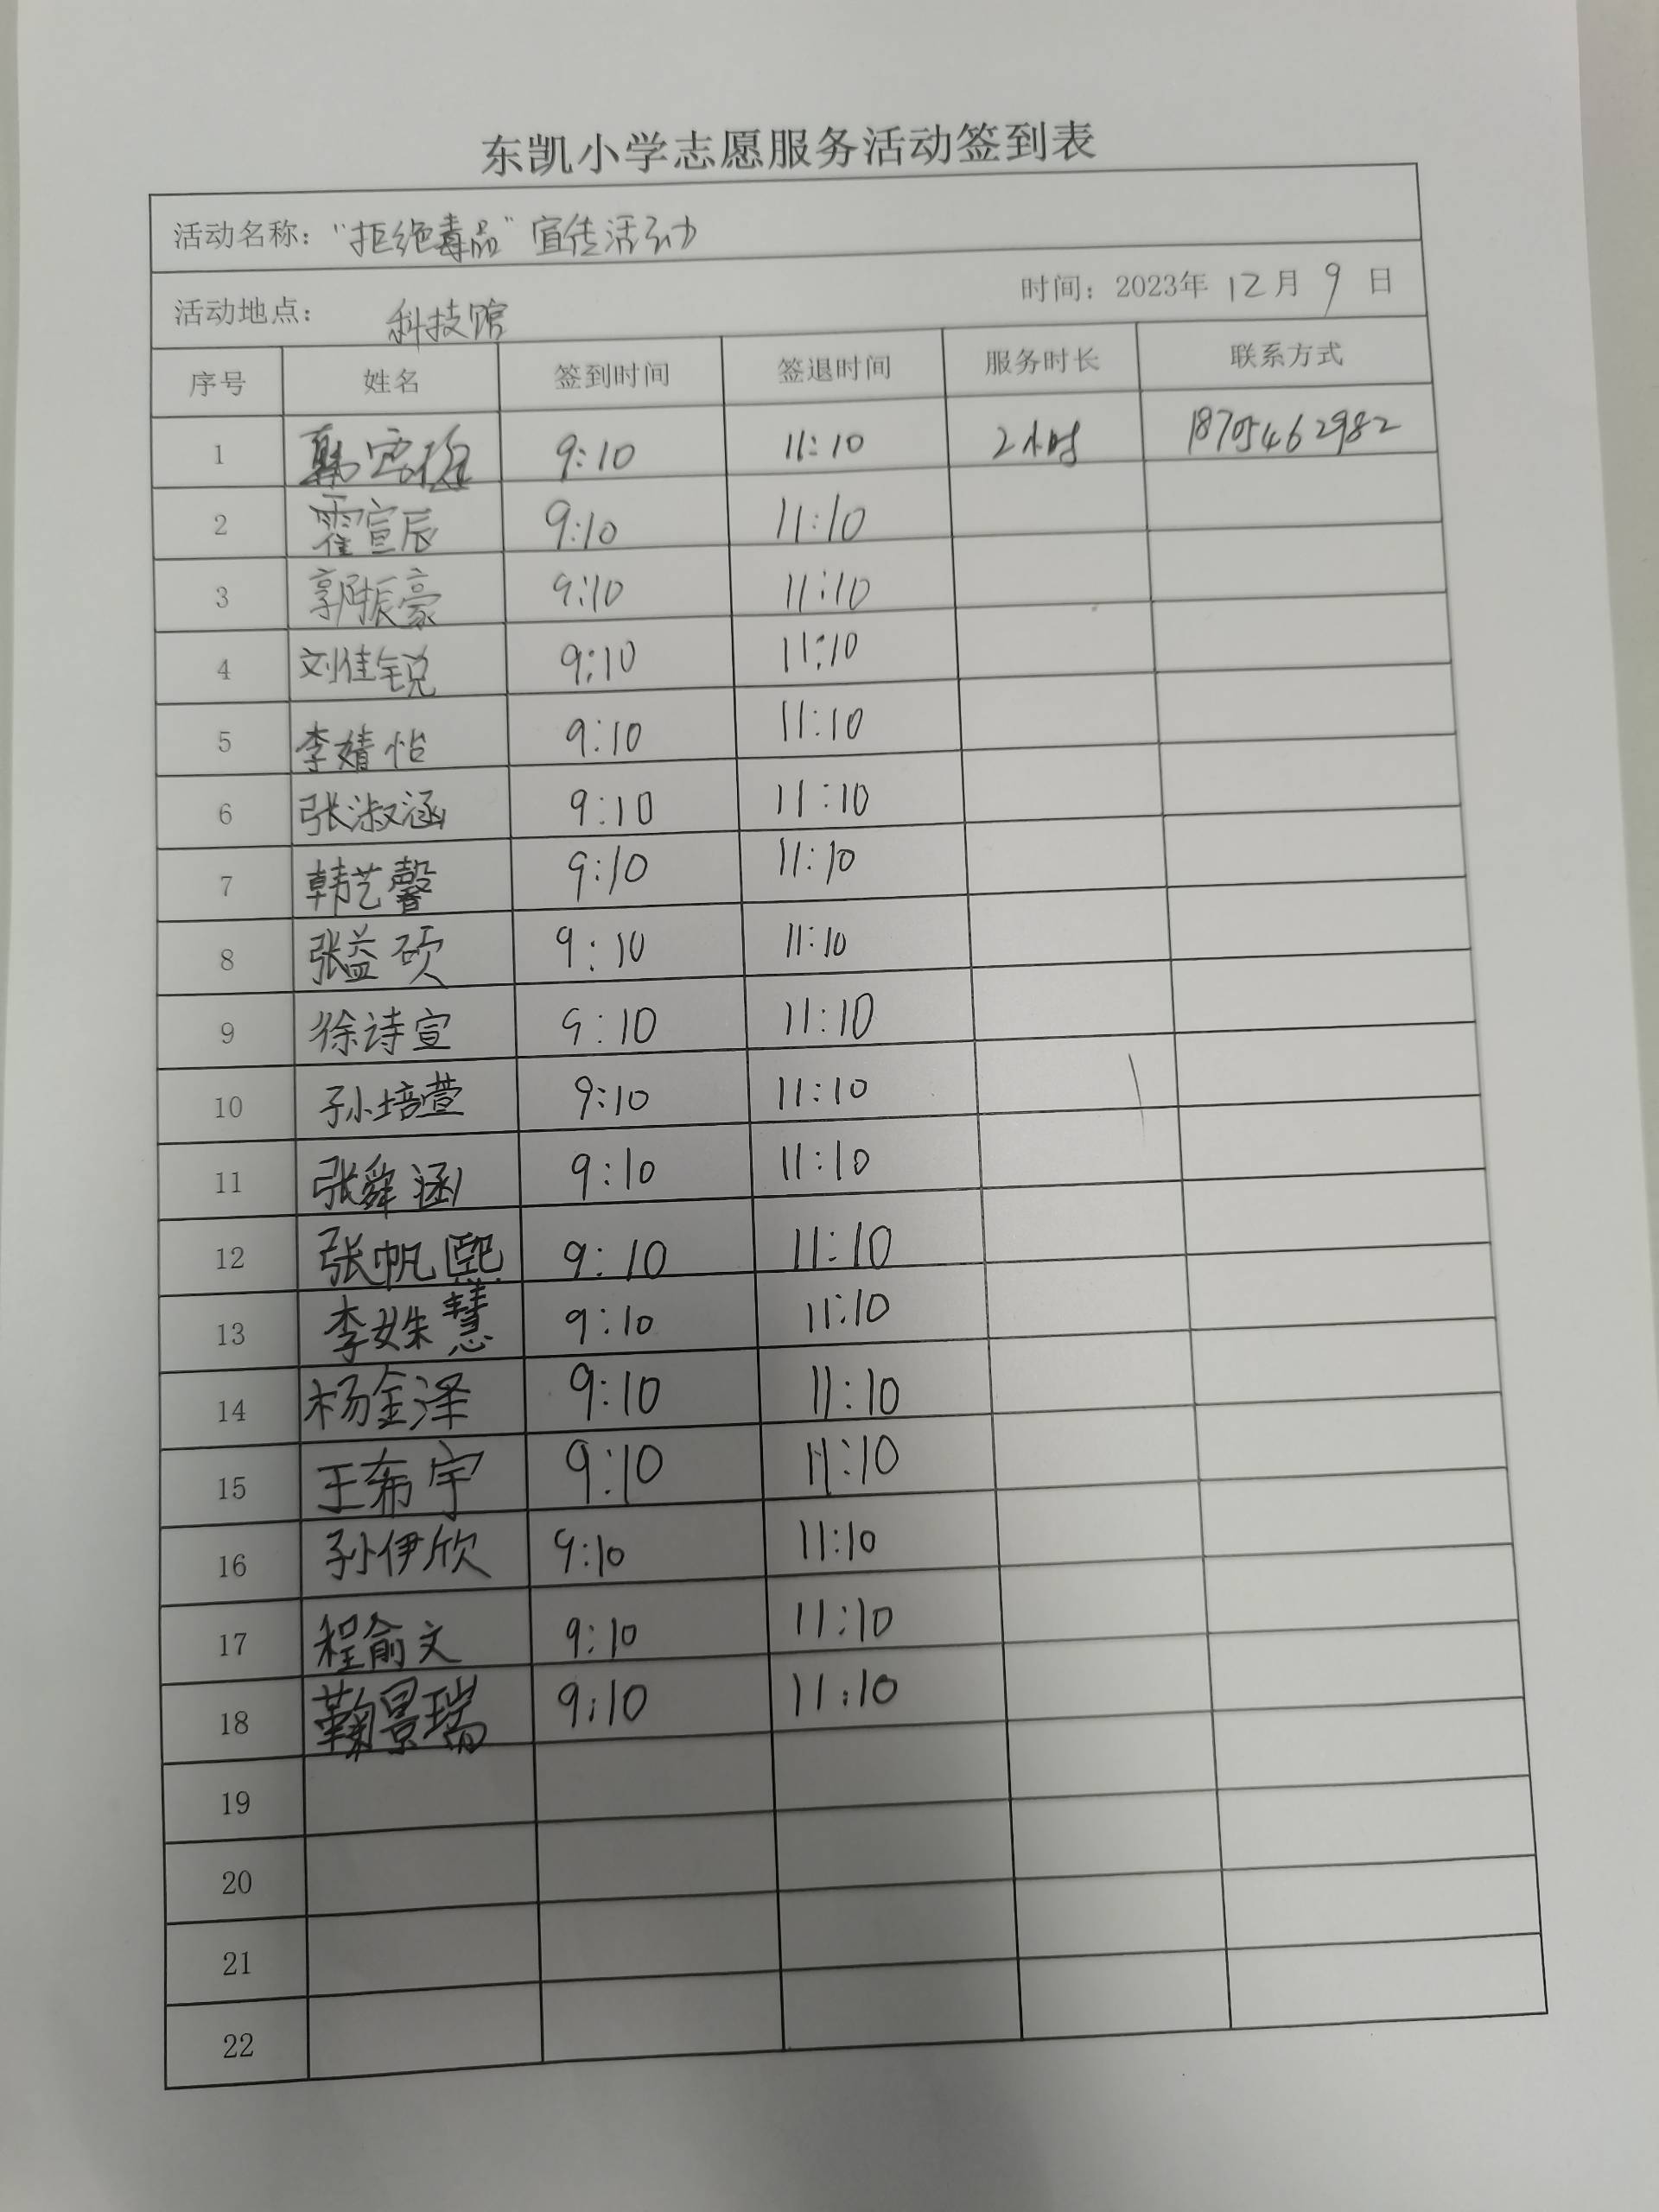 东凯小学志愿服务活动签到表
活动名称："拒绝毒品"宣传活动
活动地点： 科技馆 时间：2023年 12月 9 日
序号 姓名 签到时间 签退时间 服务时长 联系方式
1 9:10 11:10 2小时 18705462982
2 霍宣辰 9:10 11:10
3 郭振豪 9:10 11:10
4 刘佳锐 9:10 11:10
5 李婧怡 9:10 11:10
6 张淑涵 9:10 11:10
7 韩艺馨 9:10 11:10
8 张益硕 9:10 11:10
9 徐诗宣 9:10 11:10
10 孙培萱 9:10 11:10
11 张舜涵 9:10 11:10
12 张帆熙 9:10 11:10
13 李姝慧 9:10 11:10
14 杨金泽 9:10 11:10
15 王希宇 9:10 11:10
16 孙伊欣 9:10 11:10
17 程俞文 9:10 11:10
18 鞠景瑞 9:10 11:10
19
20
21
22